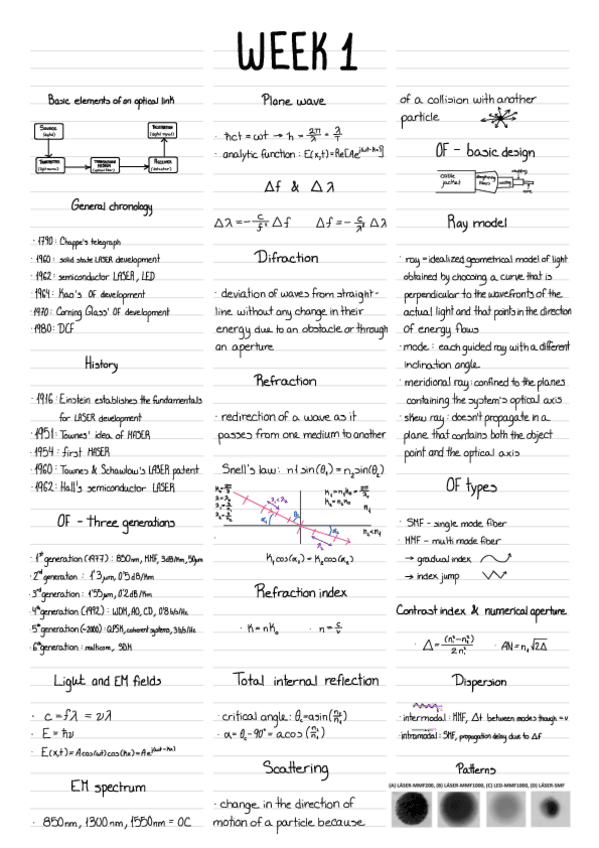 WEEK 1
Basic elements of an optical link
SOURCE
(digital)
TRANSMITTER
RECEIVER
(detector)
General chronology
· 1790: Chappe's telegraph
· 1960: solid state LASER development
· 1962: semiconductor LASER, LED
· 1964: Kao's OF development
· 1970: Corning Glass' OF development
· 1980: DCF
History
· 1916: Einstein establishes the fundamentals
for LASER development
· 1951: Townes' idea of MASER
· 1954: first MASER
· 1960: Townes & Schawlow's LASER patent
· 1962: Hall's semiconductor LASER
OF - three generations
· 1st generation (1977): 850nm, MMF, 3dB/Km, 50μm
· 2nd generation: 1'3μm, 0'5dB/Km
· 3rd generation: 1'55μm, 0'2dB/Km
· 4th generation (1992): WDM, AO, CD, 0'8 b/s/Hz
· 5th generation (~2000): QPSK, coherent systems, 3 b/s/Hz
· 6th generation: multicore, SDM
Light and EM fields
· c = fλ = νλ
· E = ħν
· E(x,t) = A cos(ωt) cos(kx) = A e^j(ωt-kx)
EM spectrum
· 850nm, 1300nm, 1550nm = OC
Plane wave
· analytic function: E(x,t) = Re[A e^j(ωt-kx)]
Δf & Δλ
Δλ = - c/f² Δf Δf = - c/λ² Δλ
Difraction
· deviation of waves from straight-
line without any change in their
energy due to an obstacle or through
an aperture
Refraction
· redirection of a wave as it
passes from one medium to another
Snell's law: n1 sin(θ₁) = n₂ sin(θ₂)
K₁cos(α₁) = K₂cos(α₂)
Refraction index
· K = nK₀ · n = c/v
Total internal reflection
· critical angle: θc = asin(n₂/n₁)
· α = θc - 90° = acos(n₂/n₁)
Scattering
· change in the direction of
motion of a particle because
of a collision with another
particle
OF - basic design
cable
jacket
strengthening
fibers
coating
cladding
core
Ray model
· ray = idealized geometrical model of light
obtained by choosing a curve that is
perpendicular to the wavefronts of the
actual light and that points in the direction
of energy flows
· mode: each guided ray with a different
inclination angle
· meridional ray: confined to the planes
containing the system's optical axis
· skew ray: doesn't propagate in a
plane that contains both the object
point and the optical axis
OF types
· SMF - single mode fiber
· MMF - multi mode fiber
→ gradual index
→ index jump
Contrast index & numerical aperture
· Δ = (n₁²-n₂²)/2n₁² · AN = n₁√2Δ
Dispersion
· intermodal: MMF, Δt between modes though = v
· intramodal: SMF, propagation delay due to Δf
Patterns
(A) LÁSER-MMF200, (B) LÁSER-MMF1000, (C) LED-MMF1000, (D) LÁSER-SMF